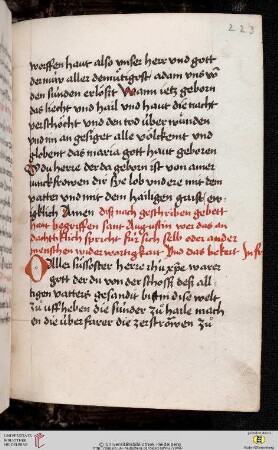 223
worffen haut also unser herr und gott
der nür aller demütigost adam uns vō
den sünden erlößt Wann ietz geborn
das liecht und hail und haut die nacht
verschöcht und den tod über wunden
und im an gesiget alle völckent und
globent das maria gott haut geboren
O du herre der da geborn ist von ainer
junckfrowen dir sye lob und ere mit dem
vatter und mit dem hailigen gaist ew
gklich Amen diß nach geschriben gebett
haut begriffen sant Augustin wer das an
dachtiklich spricht für sich selb oder ander
menschen wider wertigkait Und das bekert
O Aller süssoster herre warer
gott der du von der schoß deß all
tigen vatters gesandit bist in dise welt
zu uffheben die sünder zü haile mach
en die überfarer die zerströwen zü
UNIVERSITÄTS
BIBLIOTHEK
HEIDELBERG
© Universitätsbibliothek Heidelberg